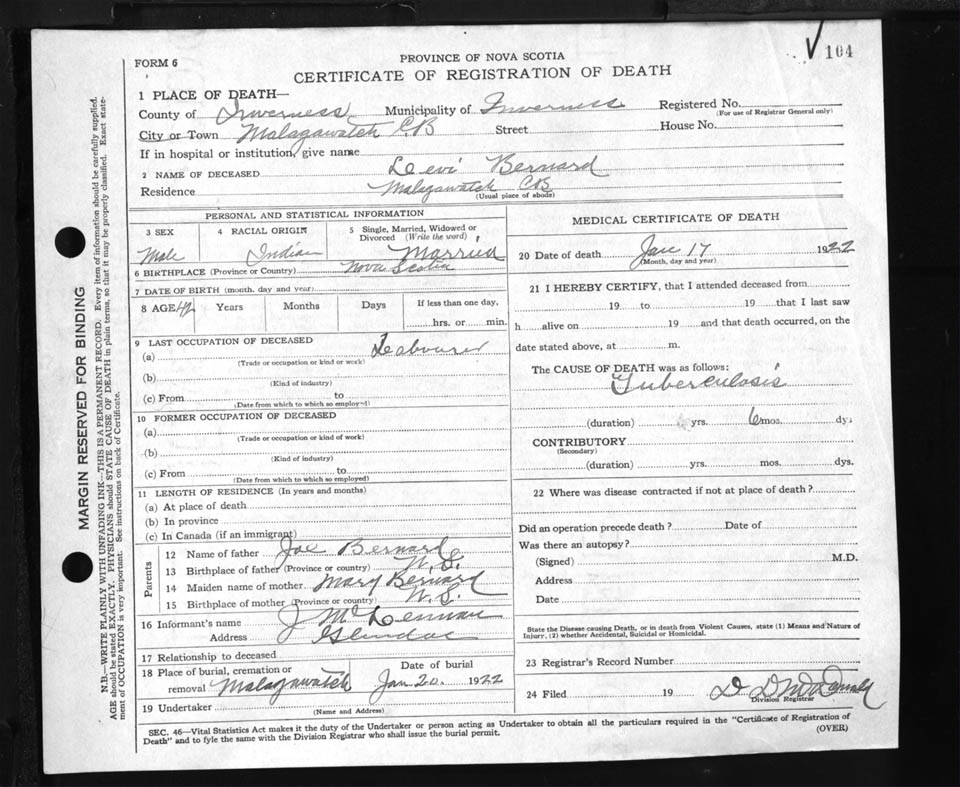 104
FORM 6
PROVINCE OF NOVA SCOTIA
CERTIFICATE OF REGISTRATION OF DEATH
1 PLACE OF DEATH—
County of Inverness Municipality of Inverness Registered No.
(For use of Registrar General only)
City or Town Malagawatch CB Street House No.
If in hospital or institution, give name
2 NAME OF DECEASED Levi Bernard
Residence Malagawatch CB
(Usual place of abode)
PERSONAL AND STATISTICAL INFORMATION
3 SEX 4 RACIAL ORIGIN 5 Single, Married, Widowed or Divorced (Write the word)
Male Indian Married
6 BIRTHPLACE (Province or Country) Nova Scotia
7 DATE OF BIRTH (month, day and year)
8 AGE 42 Years Months Days If less than one day,
hrs. or min.
9 LAST OCCUPATION OF DECEASED
(a) Labourer
(Trade or occupation or kind or work)
(b)
(Kind of industry)
(c) From to
(Date from which to which so employed)
10 FORMER OCCUPATION OF DECEASED
(a)
(Trade or occupation or kind of work)
(b)
(Kind of industry)
(c) From to
(Date from which to which so employed)
11 LENGTH OF RESIDENCE (In years and months)
(a) At place of death
(b) In province
(c) In Canada (if an immigrant)
Parents
12 Name of father Joe Bernard
13 Birthplace of father (Province or country) N.S.
14 Maiden name of mother Mary Bernard
15 Birthplace of mother (Province or country) N.S.
16 Informant's name J McLennan
Address Glendae
17 Relationship to deceased
18 Place of burial, cremation or removal Malagawatch Date of burial Jan 20. 1922
19 Undertaker
(Name and Address)
MEDICAL CERTIFICATE OF DEATH
20 Date of death Jan 17 1922
(Month, day and year)
21 I HEREBY CERTIFY, that I attended deceased from
19 to 19 that I last saw
h alive on 19 and that death occurred, on the
date stated above, at m.
The CAUSE OF DEATH was as follows:
Tuberculosis
(duration) yrs. 6 mos. dys.
CONTRIBUTORY
(Secondary)
(duration) yrs. mos. dys.
22 Where was disease contracted if not at place of death?
Did an operation precede death? Date of
Was there an autopsy?
(Signed) M.D.
Address
Date
State the Disease causing Death, or in death from Violent Causes, state (1) Means and Nature of
Injury, (2) whether Accidental, Suicidal or Homicidal.
23 Registrar's Record Number
24 Filed 19
Division Registrar
SEC. 46—Vital Statistics Act makes it the duty of the Undertaker or person acting as Undertaker to obtain all the particulars required in the "Certificate of Registration of
Death" and to fyle the same with the Division Registrar who shall issue the burial permit.
(OVER)
MARGIN RESERVED FOR BINDING
N.B.—WRITE PLAINLY WITH UNFADING INK—THIS IS A PERMANENT RECORD. Every item of information should be carefully supplied.
AGE should be stated EXACTLY. PHYSICIANS should STATE CAUSE OF DEATH in plain terms, so that it may be properly classified. Exact state-
ment of OCCUPATION is very important. See instructions on back of Certificate.